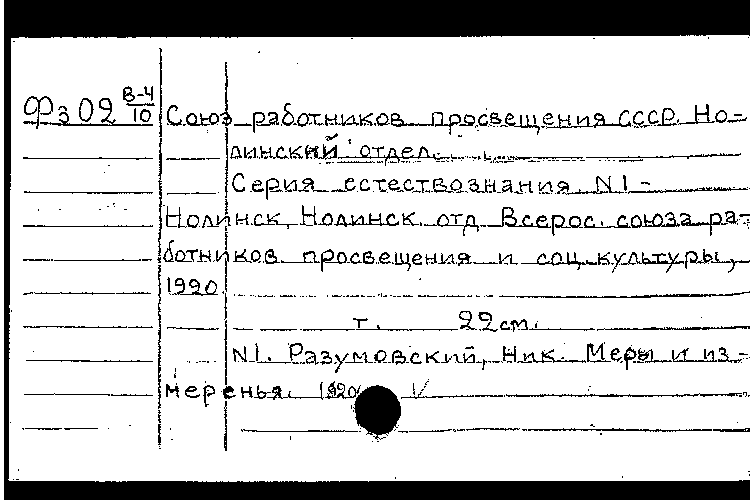 Фз 02 В-4/10 Союз работников просвещения СССР. Но-
линский отдел.
Серия естествознания. N1-
Нолинск, Нолинск. отд. Всерос. союза ра-
ботников просвещения и соц. культуры,
1920.
т. 22 см.
N1. Разумовский, Ник. Меры и из-
меренья. 1920